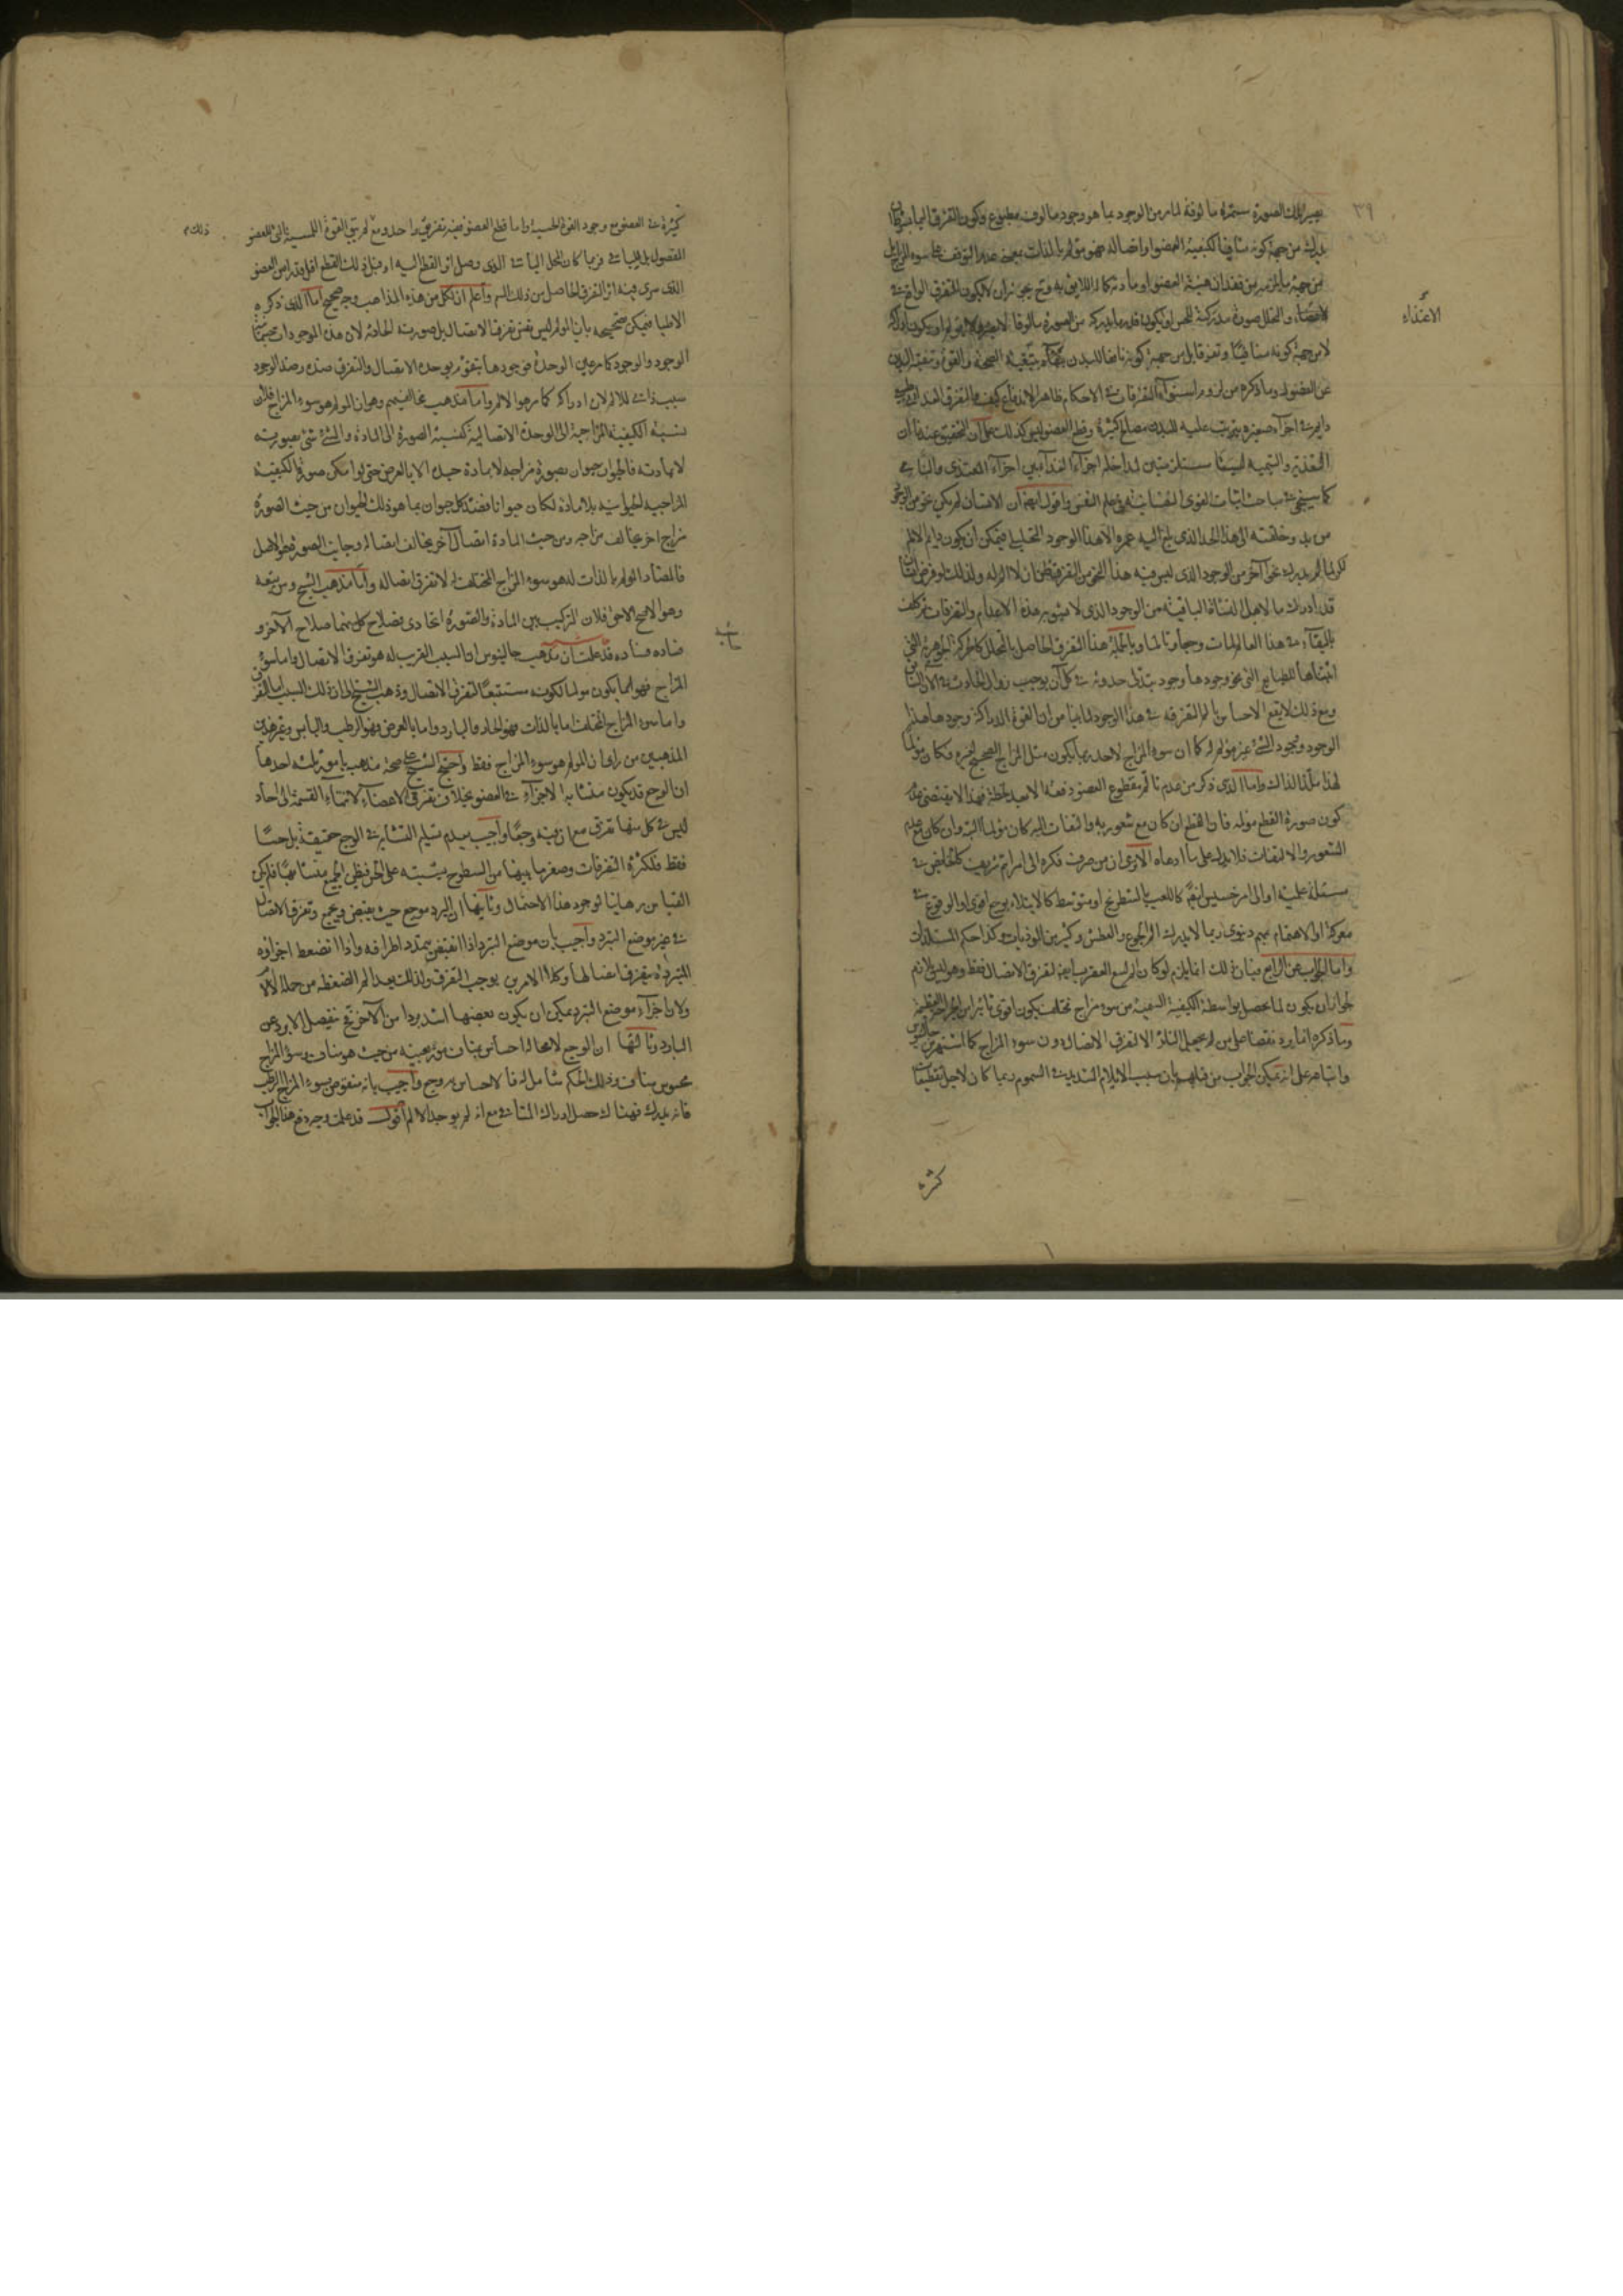 ٣٩
تصير تلك الصورة مستمرة مألوفة لما مر من الوجود بما هو وجود مألوف مطبوع وكون التفرق
يدرك من جهة كونه منافيا لكيفية العضو او اتصاله فهو مؤلم بالذات بمعنى عدم التوقف على سوء المزاج بل
من جهة ما يلزمه من فقدان هيئة العضو او مادته كماله اللايق به وح يجوز ان لا يكون التفرق الواقع في
الاغتذاء
الاغتذاء والتحلل صورة مدركة للحس او يكون
لا من جهة كونه منافيا وتفرقا بل من جهة كونه نافعا للبدن
عن الفضول وما ذكره من لزوم استواء التفرقات في الاحكام ظاهر الاندفاع كيف والتفرق الغذائى
دايم في اجزاء صغيرة يترتب عليه للبدن مصالح كثيرة وقطع العضو ليس كذلك على ان التحقيق عندنا ان
التغذية والتنمية ليستا مستلزمتين لمداخلة اجزاء الغذاء بين اجزاء المغتذى والنامى
كما سيجئ في مباحث اثبات القوى النفسانية في علم النفس واقول ايضا ان الانسان لم يكن
من بدو خلقته الى هذا الحد الذى بلغ اليه عمره الا هذا الوجود التحليلى فيمكن ان يكون دايم الالم
لكن لما لم يدرك نحوا آخر من الوجود الذى ليس فيه هذا النحو من التفرقة ظن ان لا الم له ولذلك لو فرض انسان
قد ادرك ما لاهل النشأة الباقية من الوجود الذى لا يشوبه هذه الاعدام والتفرقات ثم كلف
بالبقاء في هذا العالم لمات وجعا وتألما وبالجملة هذا التفرق الحاصل بالتحلل كالحركة الجوهرية التى
اثبتناها للطبايع التى نحو وجودها وجود يتدلى حدوثه في كل آن يوجب زوال الحادث في الآن
ومع ذلك لا يقع الاحساس بالم التفرقة في هذا الوجود لما بينا من ان القوة الدراكة وجودها هذا
الوجود ووجود الشئ غير مؤلم له كما ان سوء المزاج لاحد ربما يكون مثل المزاج الصحيح لغيره وكان مؤلما
لهذا ملذا لذاك واما الذى ذكر من عدم تألم مقطوع العضو دفعة الا بعد لحظة فهذا لا يقتضى عدم
كون صورة القطع مؤلمة فان القطع ان كان مع شعور به والتفات اليه كان مؤلما البتة وان كان مع عدم
الشعور والالتفات فلا يدل على ما ادعاه الا ترى ان من صرف فكره الى امر اتم شريف كالخايض في
مسئلة علمية او الى امر خسيس ايضا كاللعب بالشطرنج او متوسط كالابتلاء بوجع اقوى او الوقوع في
معركة او الاهتمام بمهم دنيوى ربما لا يدرك الم الجوع والعطش وكثير من الموذيات وكذا حكم المستلذات
واما الجواب عن الرابع فبان ذلك انما يلزم لو كان الم لسع العقرب بسببية تفرق الاتصال فقط وهو ليس بلازم
لجواز ان يكون لما يحصل بواسطة الكيفية السمية من سوء مزاج مختلف يكون اقوى تأثيرا من الجراحة العظيمة
وما ذكره انما يرد نقضا على من لم يجعل التألم الا لتفرق الاتصال دون سوء المزاج كما اشتهر من جالينوس
واتباعه على انه يمكن الجواب من قبلهم بان سبب الايلام الشديد في السموم ربما كان لاجل تقطيعات
كثيرة
كثيرة في العضو مع وجود القوة الحسية واما قطع العضو ففيه تفرق واحد ومع ذلك لم تبق القوة اللمسية الى العضو
ذلك م
المفصول بل الباقى فربما كان المحل الباقى الذى وصل اثر القطع اليه او قبل ذلك القطع اقل قدرا من العضو
الذى سرى فيه اثر التفرق الحاصل من ذلك السم واعلم ان لكل من هذه المذاهب وجه صحيح اما الذى ذكره
الاطبا فيمكن تصحيحه بان المؤلم ليس نفس تفرق الاتصال بل صورته الحادثة لان هذه الموجودات
الوجود والوجود كما مر عين الوحدة فوجودها يتقوم بوحدة الاتصال والتفرق ضده وضد الوجود
سبب ذاتى للالم لان ادراكه كما مر هو الالم واما مذهب مخالفيهم وهو ان المؤلم هو سوء المزاج فلان
نسبة الكيفية المزاجية الى الوحدة الاتصالية كنسبة الصورة الى المادة والشئ شئ بصورته
لا بمادته فالحيوان حيوان بصورة مزاجه لا بمادة جسده الا بالعرض حتى لو امكن صورة الكيفية
المزاجية الحيوانية بلا مادة لكان حيوانا فضد كل حيوان بما هو ذلك الحيوان من حيث الصورة
مزاج آخر يخالف مزاجه ومن حيث المادة اتصال آخر يخالف اتصاله وجانب الصورة هو الاصل
فالمضاد المؤلم بالذات له هو سوء المزاج المختلف له لا تفرق اتصاله واما مذهب الشيخ ومن يتبعه
وهو الاصح الاحق فلان التركيب بين المادة والصورة اتحادى بصلاح كل منهما صلاح الآخر و
فساده فساده قد علمت ان مذهب جالينوس ان السبب القريب له هو تفرق الاتصال واما سوء
المزاج فهو انما يكون مؤلما لكونه مستتبعا لتفرق الاتصال وذهب الشيخ الى ان ذلك السبب اما التفرق
واما سوء المزاج المختلف اما بالذات فهو الحار والبارد واما بالعرض فهو الرطب واليابس
المذهبين من راى ان المؤلم هو سوء المزاج فقط واحتج الشيخ على صحة مذهبه بامور ثلثة احدها
ان الوجع قد يكون متشابه الاجزاء في العضو بخلاف تفرق الاعضاء لانتهاء القسمة الى احاد
ليس في كل منها تفرق مع ان فيه وجعا واجيب بعدم تسليم التشابه في الوجع حقيقة بل حسا
فقط فلكثرة التفرقات وصغر ما بينها من السطوح يشتبه على الحس فيظن الجميع متشابها فلم يكن
القياس برهانيا لوجود هذا الاحتمال وثانيها ان البرد موجع حيث يقبض ويجمع وتفرق الاتصال
في غير موضع التبرد واجيب بان موضع التبرد اذا انقبض يتمدد اطرافه واذا تضغط اجزاؤه
المتبردة يتفرق اتصالها وكلا الامرين يوجب التفرق ولذلك يعد الم الضغطة من جملة الآلام
ولان اجزاء موضع التبرد يمكن ان يكون بعضها اشد بردا من الآخر فح ينفصل الابرد عن
البارد وثالثها ان الوجع لا محالة احساس بمناف موثر بغتة من حيث هو مناف وسوء المزاج
محسوس مناف وذلك الحكم شامل له فالاحساس به وجع واجيب بانه منقوض بسوء المزاج الرطب
فانه يدرك فهناك حصل ادراك المنافى مع انه لم يوجد الالم اقول قد علمت وجه دفع هذا الجواب